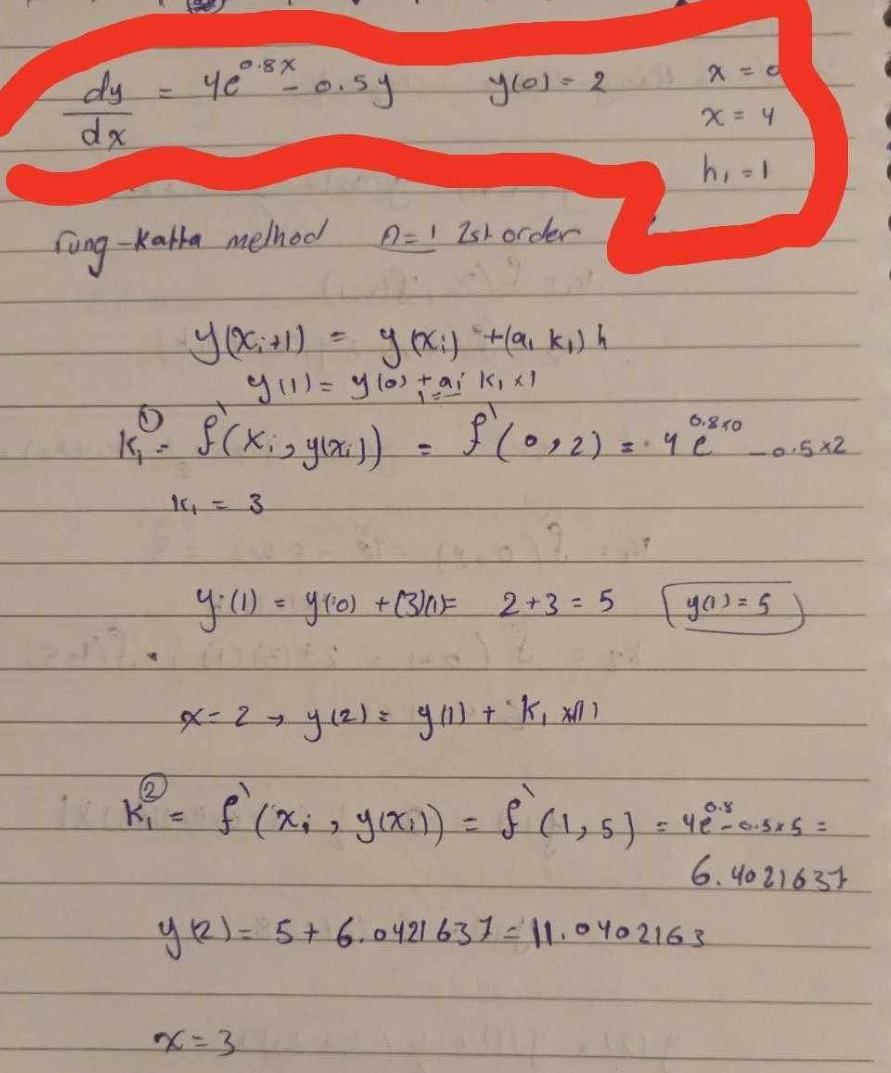 dy/dx = 4e^0.8x - 0.5y y(0) = 2 x = 0
x = 4
h, = 1
rung-katta method n=1 1st order
y(xi+1) = y(xi) + (a1 k1) h
y(1) = y(0) + a1 k1 x1
k1① = f`(xi, y(xi)) = f`(0,2) = 4e^0.8x0 - 0.5x2
k1 = 3
y:(1) = y(0) + (3)(1)= 2+3 = 5 y(1) = 5
x=2 → y(2) = y(1) + k1 x 1
k1② = f`(xi, y(xi)) = f`(1,5) = 4e^0.8 - 0.5x5 =
6.4021637
y(2) = 5 + 6.0421637 = 11.0402163
x=3